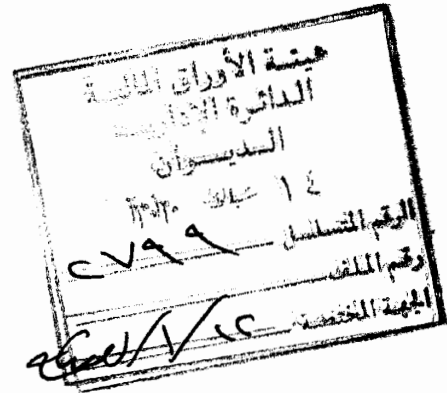 هيئة الأوراق المالية
الدائرة الإدارية
الديوان
١٤ شباط
الرقم المتسلسل ٢٧٩٩
رقم الملف
الجهة المختصة